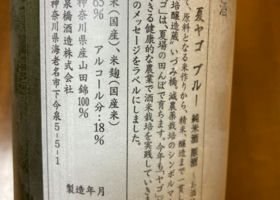 夏ヤゴ ブルー 純米酒 原酒
、原料となる米作りから、精米、醸造まで一貫
培醸造蔵"いづみ橋。減農薬栽培のシンボルマ
ゴ"は、夏場の田んぼで育ちます。今年も「ヤゴ」
きる健康的な農業で酒米栽培を実践していき
のメッセージをラベルにしました。
米(国産)、米麹(国産米)
65% アルコール分:18%
神奈川県産山田錦100%
泉橋酒造株式会社
神奈川県海老名市下今泉5-5-1
製造年月